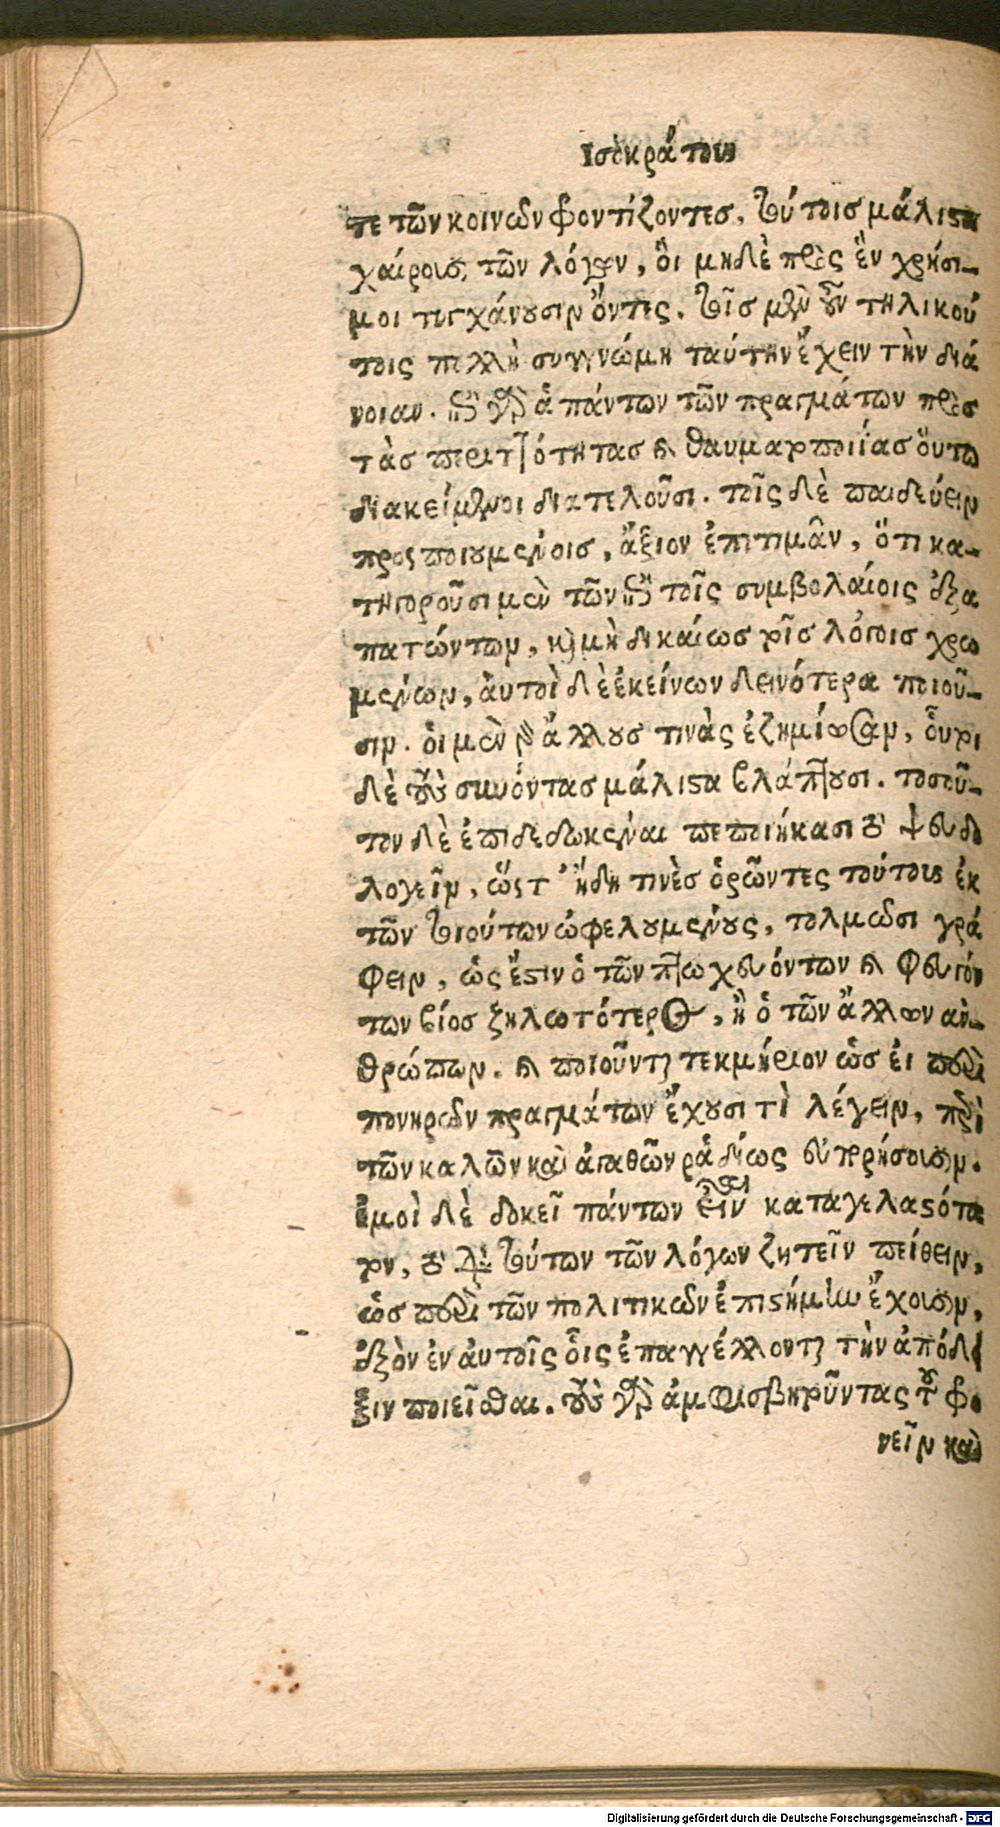 Ισοκράτους
τε τῶν κοινῶν φροντίζοντες, τούτοις μάλιστα
χαίρουσι τῶν λόγων, οἳ μηδὲ πρὸς ἓν χρήσι-
μοι τυγχάνουσιν ὄντες. τοῖς μὲν οὖν τηλικού
τοις πολλὴ συγγνώμη ταύτην ἔχειν τὴν διά
νοιαν. ἐπὶ γὰρ ἁπάντων τῶν πραγμάτων πρὸς
τὰς περιττότητας καὶ θαυματοποιίας οὕτω
διακείμενοι διατελοῦσι. τοῖς δὲ παιδεύειν
προσποιουμένοις, ἄξιον ἐπιτιμᾶν, ὅτι κα-
τηγοροῦσι μὲν τῶν ἐπὶ τοῖς συμβολαίοις ἐξα
πατώντων, καὶ μὴ δικαίως τοῖς λόγοις χρω
μένων, αὐτοὶ δὲ ἐκείνων δεινότερα ποιοῦ-
σιν. οἱ μὲν γὰρ ἄλλους τινὰς ἐζημίωσαν, οὗτοι
δὲ τοὺς συνόντας μάλιστα βλάπτουσι. τοσοῦ-
τον δὲ ἐπιδεδωκέναι πεποιήκασι τὸ ψευδο
λογεῖν, ὥστ' ἤδη τινὲς ὁρῶντες τούτους ἐκ
τῶν τοιούτων ὠφελουμένους, τολμῶσι γρά
φειν, ὡς ἔστιν ὁ τῶν πτωχευόντων καὶ φευγόν
των βίος ζηλωτότερος, ἢ ὁ τῶν ἄλλων ἀν-
θρώπων. καὶ ποιοῦνται τεκμήριον ὡς εἰ περὶ
πονηρῶν πραγμάτων ἔχουσι τὶ λέγειν, περὶ
τῶν καλῶν καὶ ἀγαθῶν ῥᾳδίως εὐπορήσουσιν.
ἐμοὶ δὲ δοκεῖ πάντων εἶναι καταγελαστότα
τον, τὸ διὰ τούτων τῶν λόγων ζητεῖν πείθειν,
ὡς περὶ τῶν πολιτικῶν ἐπιστήμην ἔχουσιν,
ἐξὸν ἐν αὐτοῖς οἷς ἐπαγγέλλονται τὴν ἀπόδει
ξιν ποιεῖσθαι. τοὺς γὰρ ἀμφισβητοῦντας τοῦ φρο
νεῖν καὶ
Digitalisierung gefördert durch die Deutsche Forschungsgemeinschaft - DFG